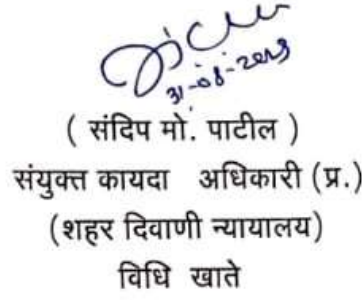 ( संदिप मो. पाटील )
संयुक्त कायदा अधिकारी (प्र.)
(शहर दिवाणी न्यायालय)
विधि खाते